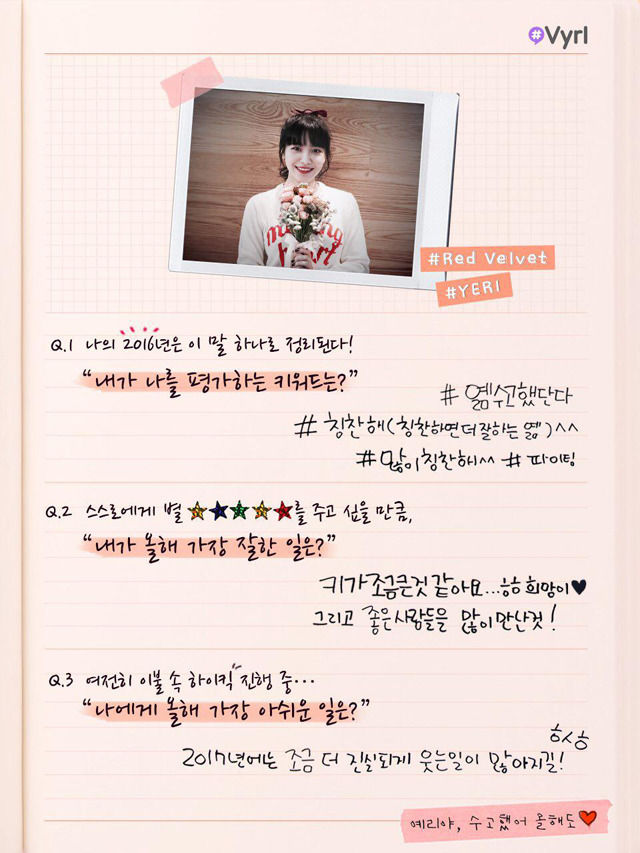 #Vyrl
#Red Velvet
#YERI
Q.1 나의 2016년은 이 말 하나로 정리된다!
“내가 나를 평가하는 키워드는?”
# 옒수고했단다
# 칭찬해(칭찬하면 더 잘하는 옒)^^
#많이칭찬해^^ # 파이팅
Q.2 스스로에게 별 ★★★★★를 주고 싶을 만큼,
“내가 올해 가장 잘한 일은?”
키가조금큰것 같아요...ㅎㅎ 희망이♥
그리고 좋은사람들을 많이만난것!
Q.3 여전히 이불 속 하이킥 진행 중···
“나에게 올해 가장 아쉬운 일은?”
ㅎㅅㅎ
2017년에는 조금 더 진실되게 웃는일이 많아지길!
예리야, 수고했어 올해도♥